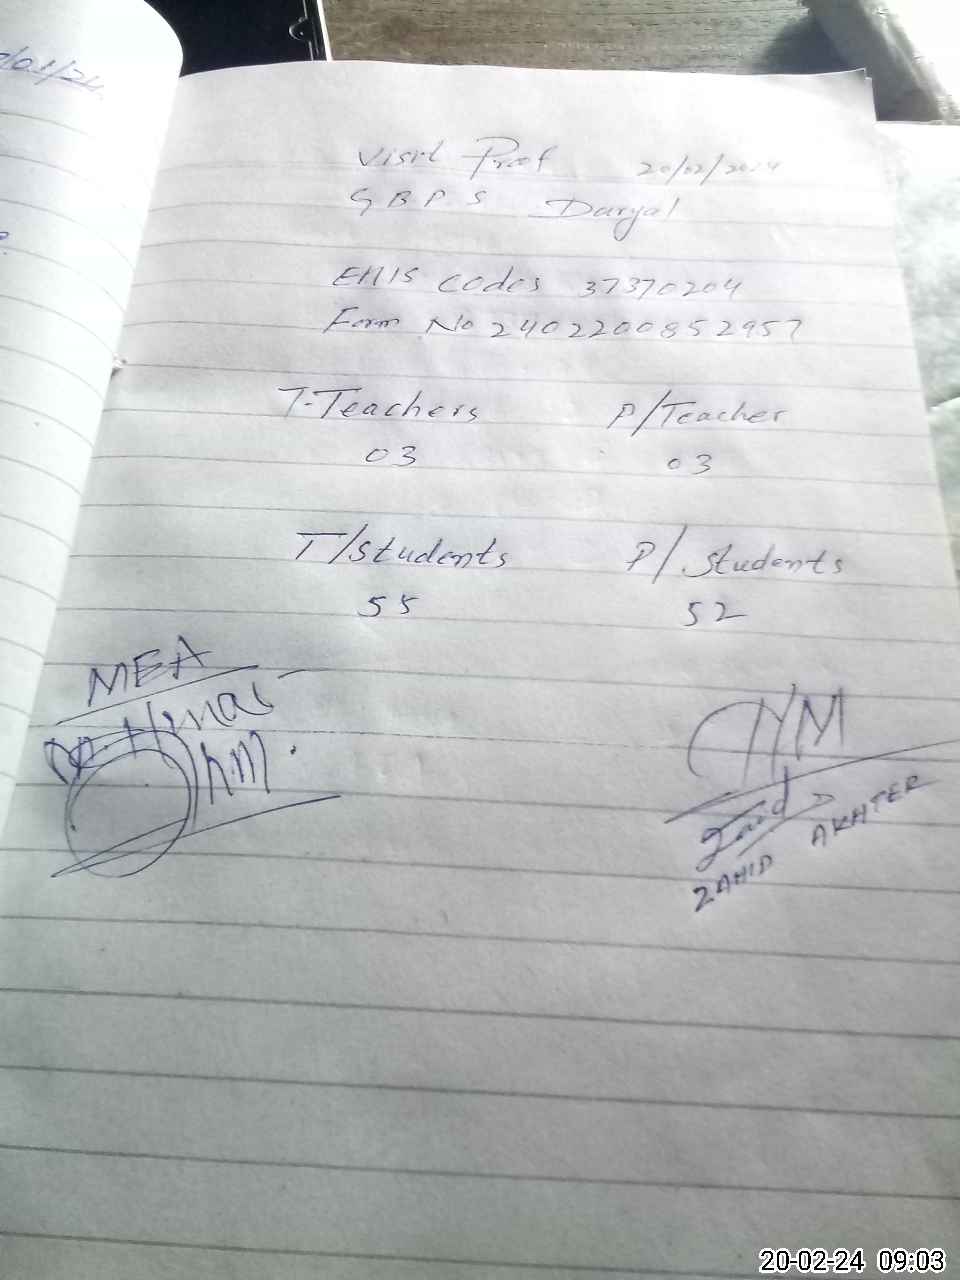 /01/24
Visit Prof 20/02/2024
GBPS Daryal
EMIS Codes 37370204
Form No 2402200852957
T-Teachers P/Teacher
03 03
T/students P/.students
55 52
MEA
H/M
Zahid
ZAHID AKHTER
20-02-24 09:03